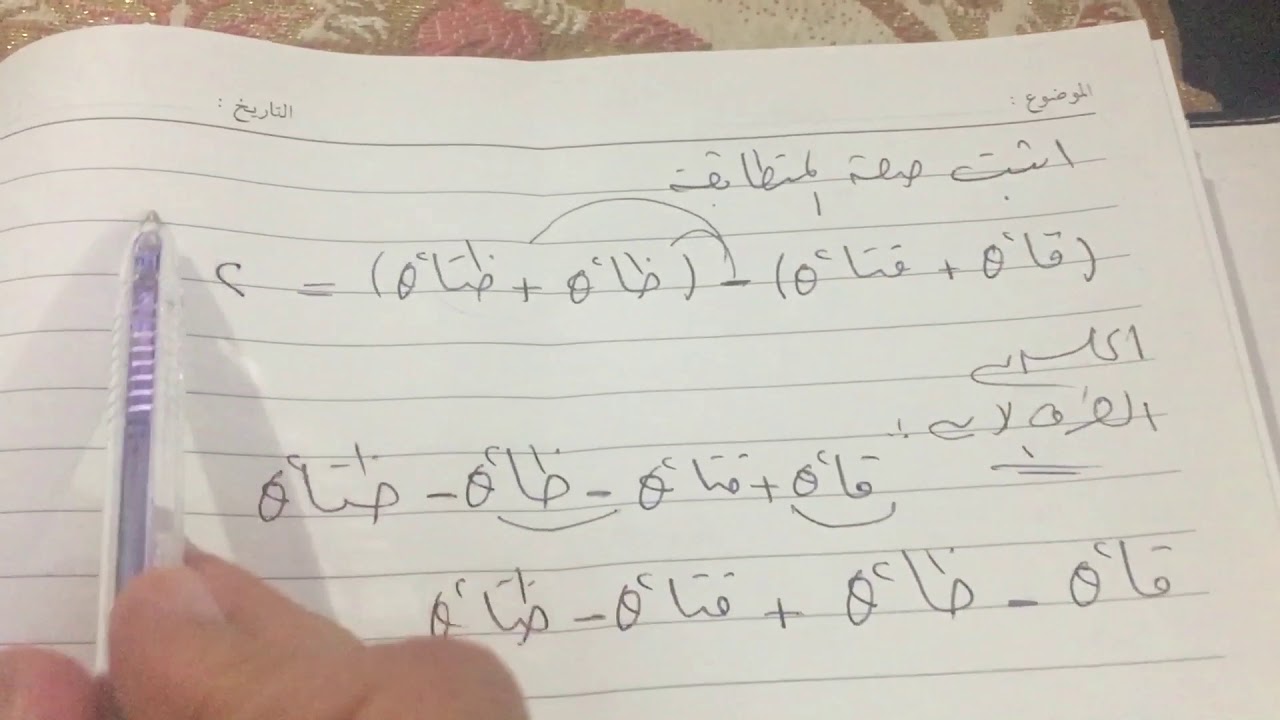 الموضوع : التاريخ :
اثبت صحة المتطابقة
(قا٢θ + قتا٢θ) - (ظا٢θ + ظتا٢θ) = ٢
الطرف الايسر :
قا٢θ + قتا٢θ - ظا٢θ - ظتا٢θ
قا٢θ - ظا٢θ + قتا٢θ - ظتا٢θ